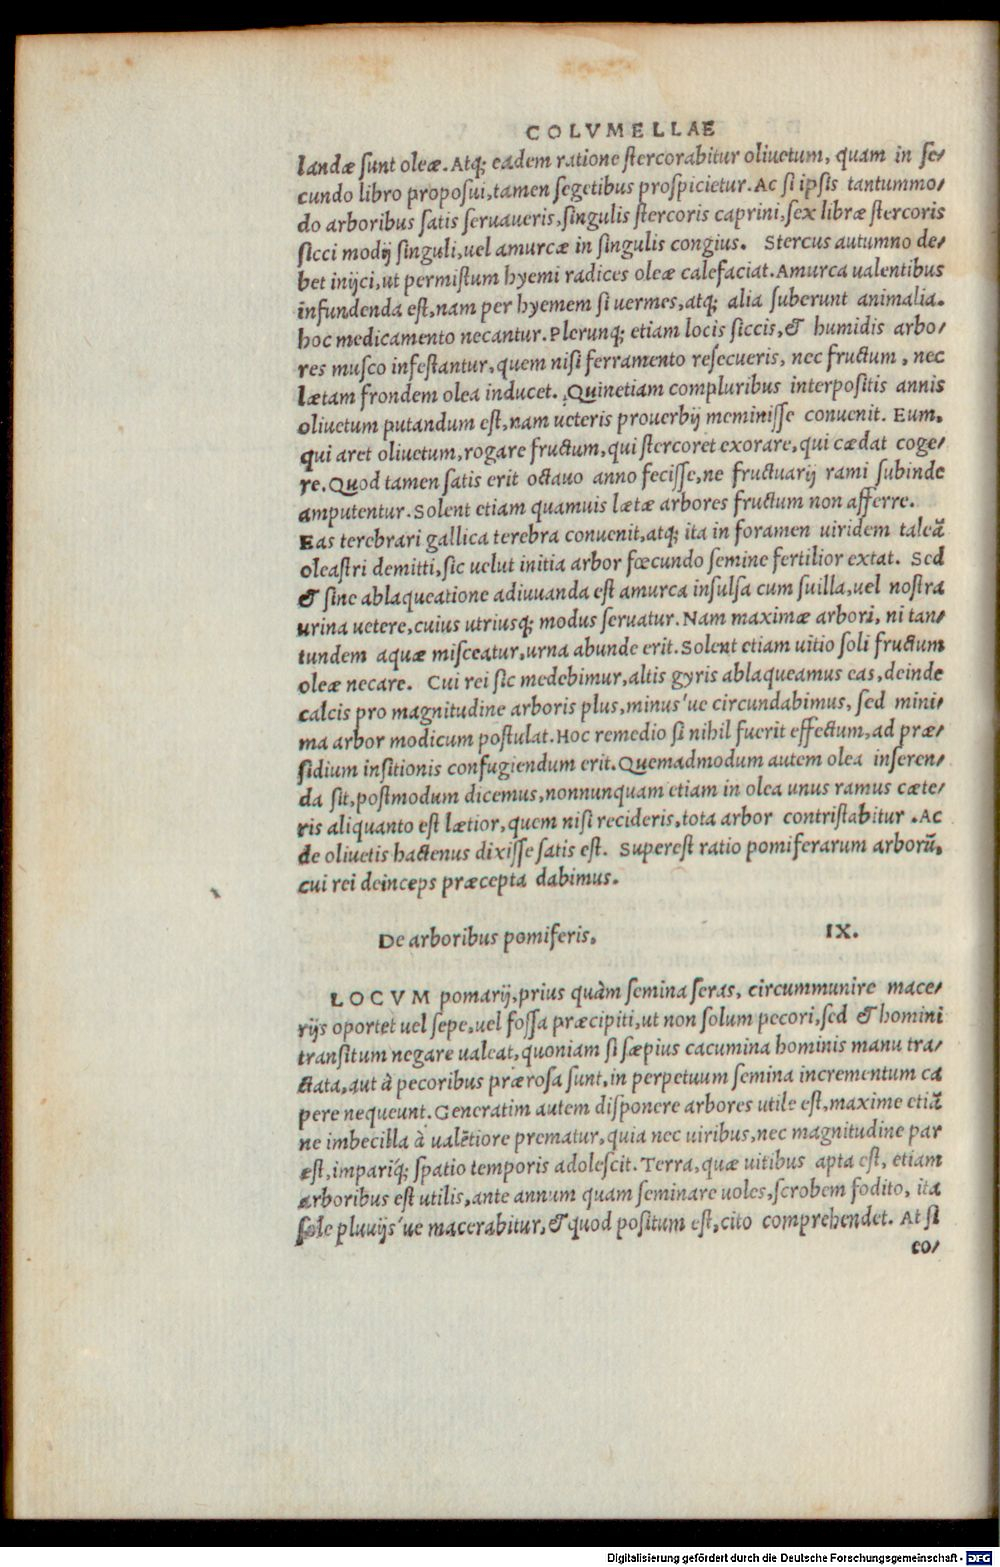 COLVMELLAE
landæ sunt oleæ. Atq; eadem ratione stercorabitur oliuetum, quam in se/
cundo libro proposui, tamen segetibus prospicietur. Ac si ipsis tantummo/
do arboribus satis seruaueris, singulis stercoris caprini, sex libræ stercoris
sicci modij singuli, uel amurcæ in singulis congius. Stercus autumno de/
bet inijci, ut permistum hyemi radices oleæ calefaciat. Amurca ualentibus
infundenda est, nam per hyemem si uermes, atq; alia suberunt animalia.
hoc medicamento necantur. Plerunq; etiam locis siccis, & humidis arbo/
res musco infestantur, quem nisi ferramento resecueris, nec fructum, nec
lætam frondem olea inducet. Quinetiam compluribus interpositis annis
oliuetum putandum est, nam ueteris prouerbij meminisse conuenit. Eum.
qui aret oliuetum, rogare fructum, qui stercoret exorare, qui cædat coge/
re. Quod tamen satis erit octauo anno fecisse, ne fructuarij rami subinde
amputentur. Solent etiam quamuis lætæ arbores fructum non afferre.
Eas terebrari gallica terebra conuenit, atq; ita in foramen uiridem taleã
oleastri demitti, sic uelut initia arbor fœcundo semine fertilior extat. Sed
& sine ablaqueatione adiuuanda est amurca insulsa cum suilla, uel nostra
urina uetere, cuius utriusq; modus seruatur. Nam maximæ arbori, ni tan/
tundem aquæ misceatur, urna abunde erit. Solent etiam uitio soli fructum
oleæ necare. Cui rei sic medebimur, altis gyris ablaqueamus eas, deinde
calcis pro magnitudine arboris plus, minus'ue circundabimus, sed mini/
ma arbor modicum postulat. Hoc remedio si nihil fuerit effectum, ad præ/
sidium insitionis confugiendum erit. Quemadmodum autem olea inseren/
da sit, postmodum dicemus, nonnunquam etiam in olea unus ramus cæte/
ris aliquanto est lætior, quem nisi recideris, tota arbor contristabitur. Ac
de oliuetis hactenus dixisse satis est. Superest ratio pomiferarum arborũ,
cui rei deinceps præcepta dabimus.
De arboribus pomiferis. IX.
LOCVM pomarij, prius quàm semina seras, circummunire mace/
rijs oportet uel sepe, uel fossa præcipiti, ut non solum pecori, sed & homini
transitum negare ualeat, quoniam si sæpius cacumina hominis manu tra/
ctata, aut à pecoribus prærosa sunt, in perpetuum semina incrementum ca
pere nequeunt. Generatim autem disponere arbores utile est, maxime etiã
ne imbecilla à ualẽtiore prematur, quia nec uiribus, nec magnitudine par
est, impariq́; spatio temporis adolescit. Terra, quæ uitibus apta est, etiam
arboribus est utilis, ante annum quam seminare uoles, scrobem fodito, ita
sole pluuijs'ue macerabitur, & quod positum est, cito comprehendet. At si
co/
Digitalisierung gefördert durch die Deutsche Forschungsgemeinschaft - DFG